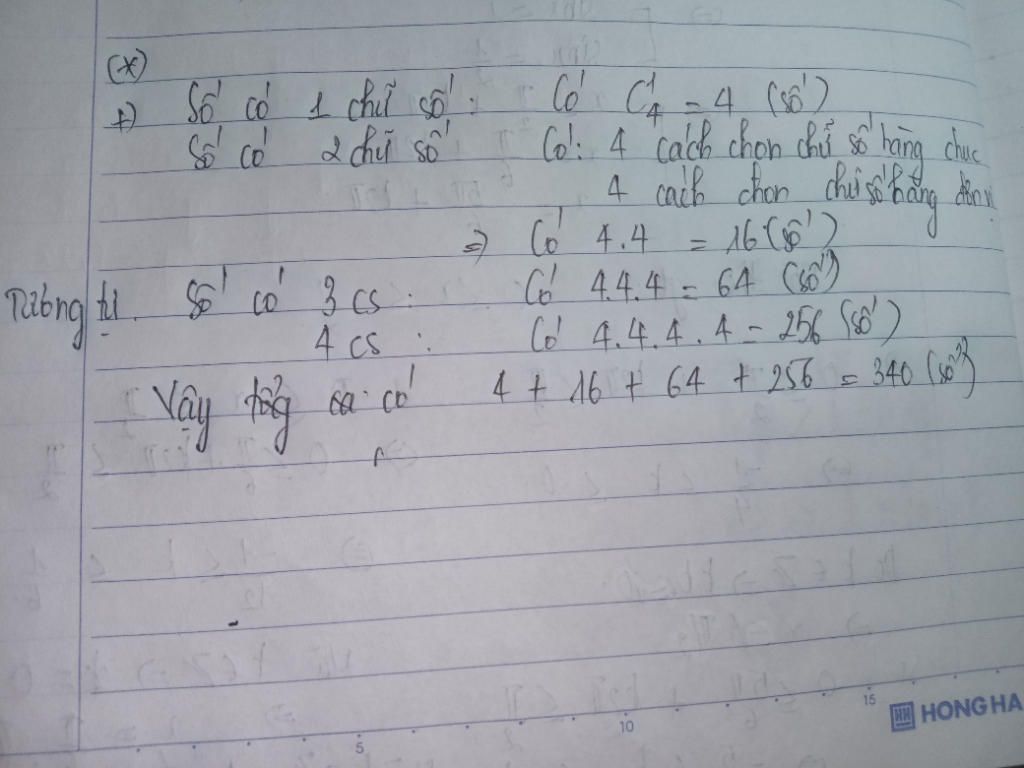 (*)
+) Số có 1 chữ số: Có C¹₄ = 4 (số)
Số có 2 chữ số Có: 4 cách chọn chữ số hàng chục
4 cách chọn chữ số hàng đơn vị
=> Có 4.4 = 16 (số)
Tương tự. Số có 3 cs: Có 4.4.4 = 64 (số)
4 cs: Có 4.4.4.4 = 256 (số)
Vậy tổng có 4 + 16 + 64 + 256 = 340 (số)
5 10 15 HONG HA